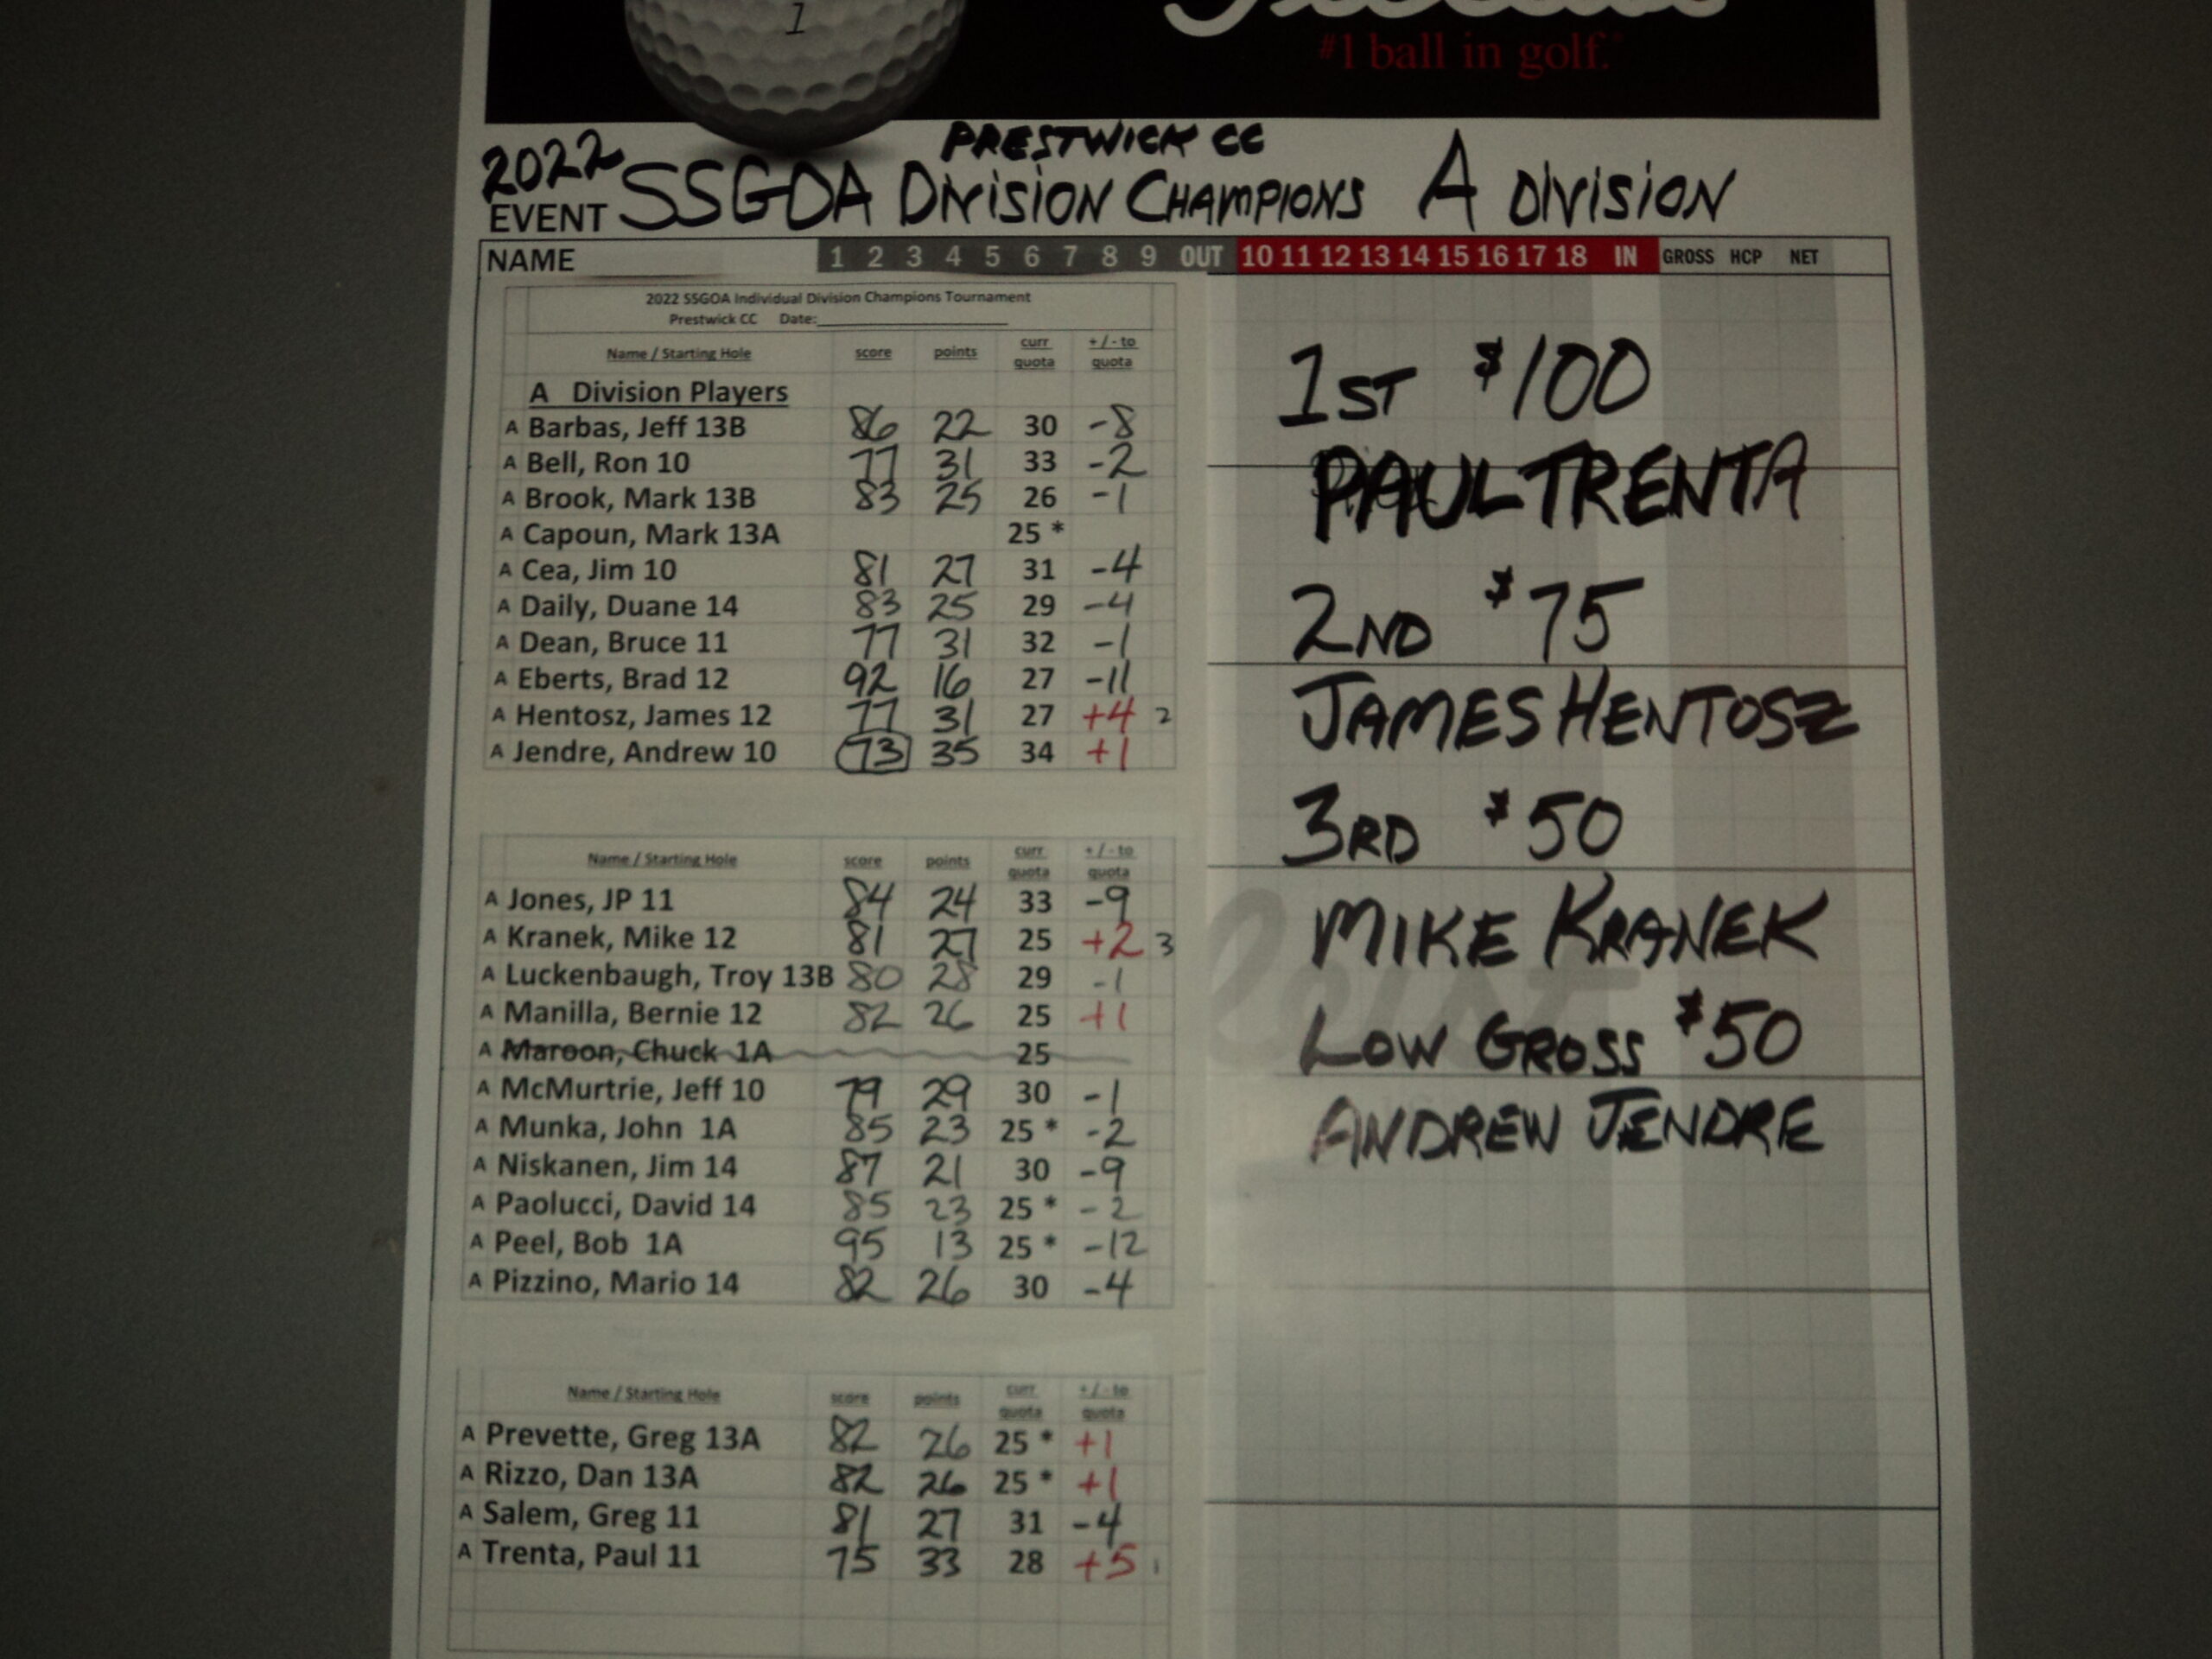 1
#1 ball in golf.
PRESTWICK CC
2022 SSGOA DIVISION CHAMPIONS A DIVISION
EVENT
NAME 1 2 3 4 5 6 7 8 9 OUT 10 11 12 13 14 15 16 17 18 IN GROSS HCP NET
2022 SSGOA Individual Division Champions Tournament
Prestwick CC Date:
Name / Starting Hole score points curr quota + / - to quota
A Division Players
A Barbas, Jeff 13B 86 22 30 -8
A Bell, Ron 10 77 31 33 -2
A Brook, Mark 13B 83 25 26 -1
A Capoun, Mark 13A 25 *
A Cea, Jim 10 81 27 31 -4
A Daily, Duane 14 83 25 29 -4
A Dean, Bruce 11 77 31 32 -1
A Eberts, Brad 12 92 16 27 -11
A Hentosz, James 12 77 31 27 +4 2
A Jendre, Andrew 10 73 35 34 +1
Name / Starting Hole score points curr quota + / - to quota
A Jones, JP 11 84 24 33 -9
A Kranek, Mike 12 81 27 25 +2 3
A Luckenbaugh, Troy 13B 80 28 29 -1
A Manilla, Bernie 12 82 26 25 +1
A Maroon, Chuck 1A 25
A McMurtrie, Jeff 10 79 29 30 -1
A Munka, John 1A 85 23 25 * -2
A Niskanen, Jim 14 87 21 30 -9
A Paolucci, David 14 85 23 25 * -2
A Peel, Bob 1A 95 13 25 * -12
A Pizzino, Mario 14 82 26 30 -4
Name / Starting Hole score points curr quota + / - to quota
A Prevette, Greg 13A 82 26 25 * +1
A Rizzo, Dan 13A 82 26 25 * +1
A Salem, Greg 11 81 27 31 -4
A Trenta, Paul 11 75 33 28 +5 1
1ST $100
PAUL TRENTA
2ND $75
JAMES HENTOSZ
3RD $50
MIKE KRANEK
LOW GROSS $50
ANDREW JENDRE